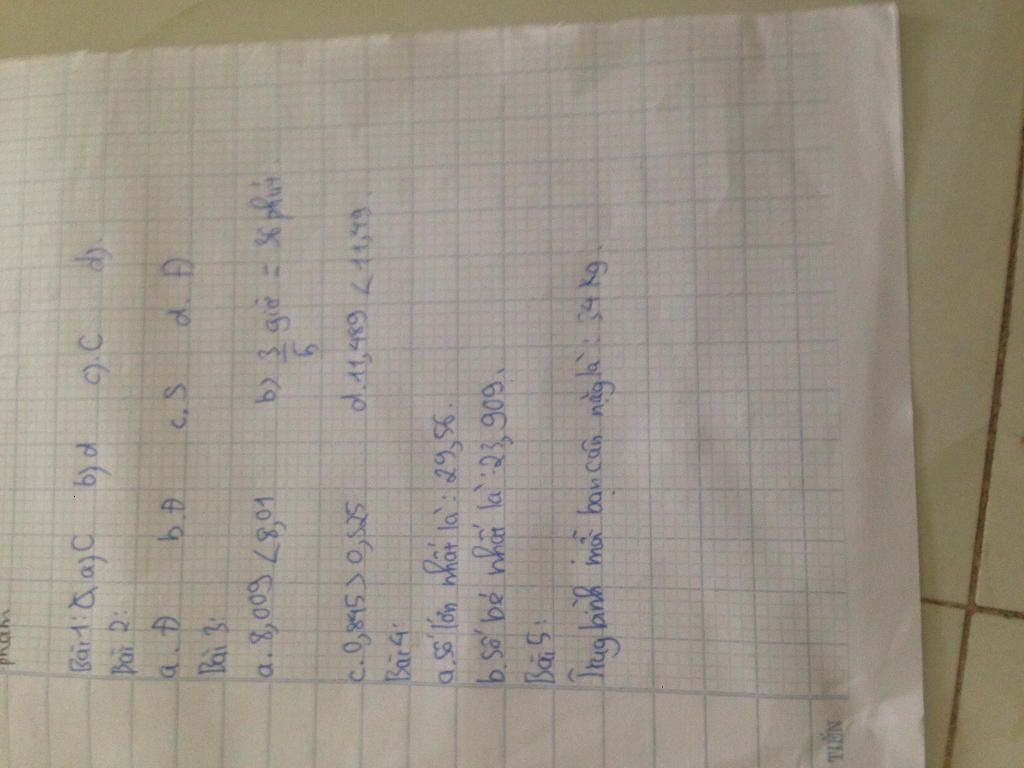 phẩm
Bài 1: a) C b) d c). C d).
Bài 2:
a. Đ b. Đ c. S d. Đ
Bài 3:
a. 8,009 < 8,01 b) 3/5 giờ = 36 phút
c. 0,845 > 0,525 d. 11,489 < 11,49.
Bài 4:
a. số lớn nhất là: 29,56.
b. số bé nhất là: 23,909.
Bài 5:
Trung bình mỗi bạn cân nặng là: 34 kg.
TIẾN